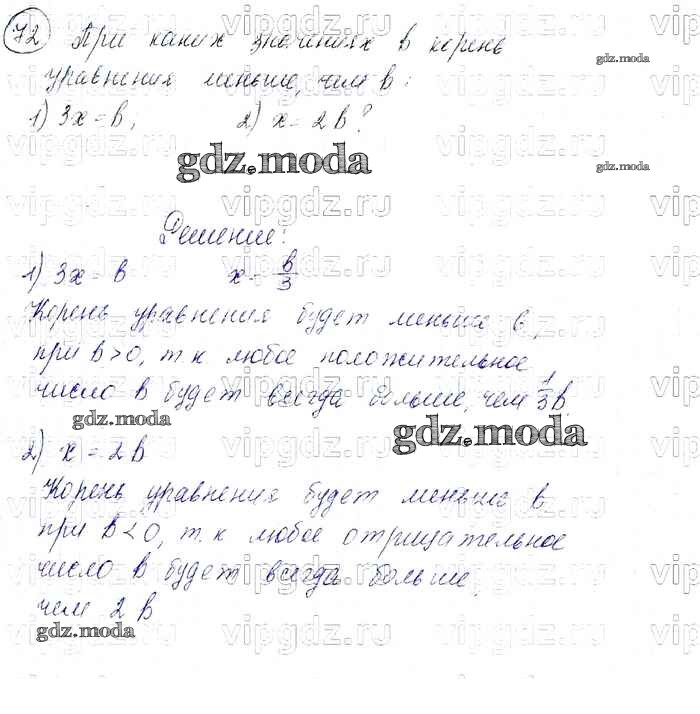 72 При каких значениях b корень
уравнения меньше, чем b:
1) 3x = b; 2) x = 2b?
Решение:
1) 3x = b x = b/3
Корень уравнения будет меньше b,
при b > 0, т.к любое положительное
число b будет всегда больше, чем 1/3 b.
2) x = 2b
Корень уравнения будет меньше b
при b < 0, т.к любое отрицательное
число b будет всегда больше,
чем 2b
gdz.moda
gdz.moda
gdz.moda
gdz.moda
gdz.moda
gdz.moda
vipgdz.ru